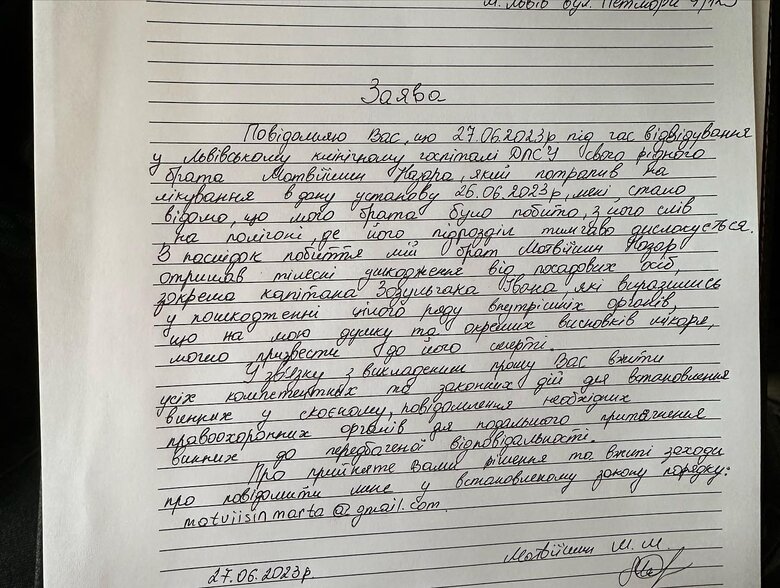 м. Львів вул.
Заява
Повідомляю Вас, що 27.06.2023р під час відвідування
у Львівському клінічному госпіталі ДПСУ свого рідного
брата Матвіїшин Назара, який потрапив на
лікування в дану установу 26.06.2023р, мені стало
відомо, що мого брата було побито, з його слів
на полігоні, де його підрозділ тимчасово дислокується.
В последок побиття мій брат Матвіїшин Назар
отримав тілесні ушкодження від посадових осіб,
зокрема капітана Зозульчака Івана які виразились
у пошкодженні цілого ряду внутрішніх органів,
що на мою думку та окремих висновків лікаря,
можно призвести до його смерті.
У зв'язку з викладеним прошу Вас вжити
усіх компетентних та законних дій для встановлення
винних у скоєному, повідомлення необхідних
правоохоронних органів для подальшого притягнення
винних до передбаченої відповідальності.
Про прийняте Вами рішення та вжиті заходи
про повідомити мене у встановленому закону порядку:
matviisinmarta@gmail.com.
27.06.2023р.
Матвіїшин М. М.